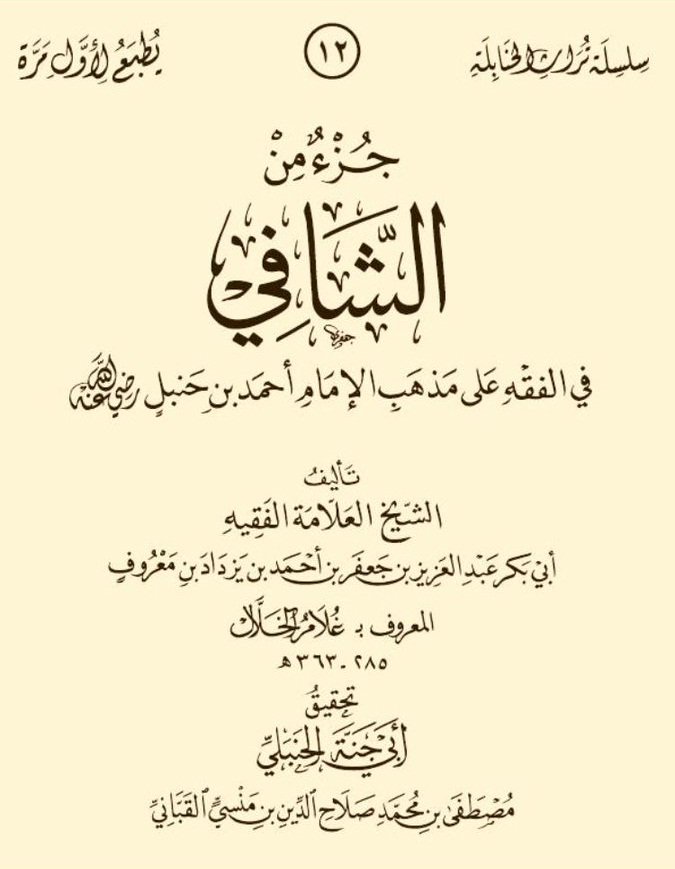 سِلسِلَة تُرَاثِ الحَنَابِلَةِ
١٢
يُطبَعُ لِأوَّلِ مَرَّة
جُزْءٌ مِنْ
الشَّافِي
في الفقهِ عَلى مَذهَبِ الإمَامِ أحمَد بنِ حَنبلٍ رضي الله عنه
تَأليفُ
الشّيخ العَلّامَة الفَقِيهِ
أبي بَكر عَبْدِ العَزيزِ بن جَعفَر بن أحْمَد بن يَزدَادَ بنِ مَعْرُوفٍ
المعروف بـ غُلَامُ الخَلَّال
٢٨٥ - ٣٦٣ هـ
تحقيقُ
أبي جَنَّةَ الحَنبَليِّ
مُصْطَفَى بنِ مُحَمَّد صَلَاحِ الدِّينِ بنِ مَنْسِيٍّ القَبَّانِيِّ